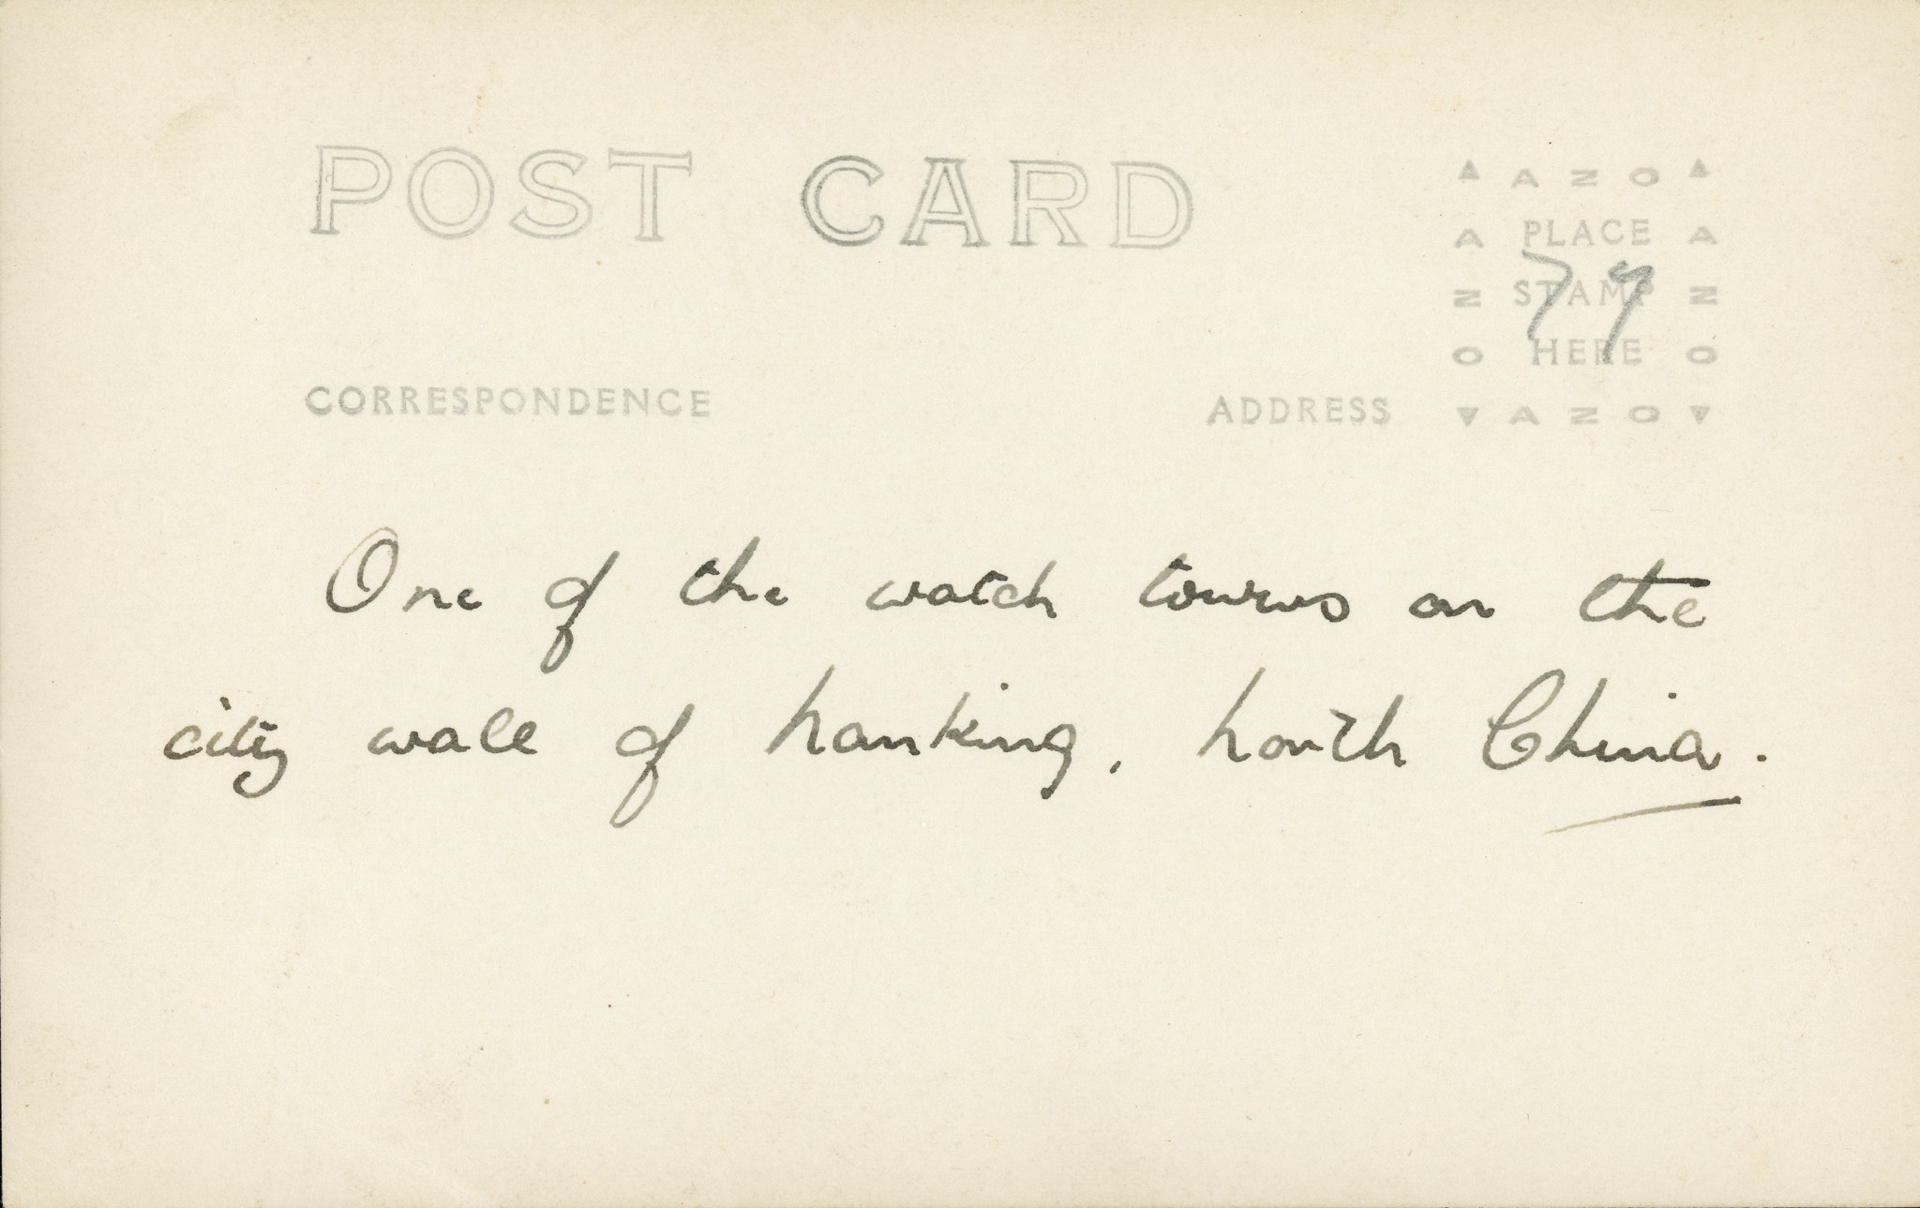 POST CARD
▲ A Z O ▲
A PLACE A
Z STAMP Z
O HERE O
▼ A Z O ▼
79
CORRESPONDENCE
ADDRESS
One of the watch towers on the
city wall of Nanking, North China.